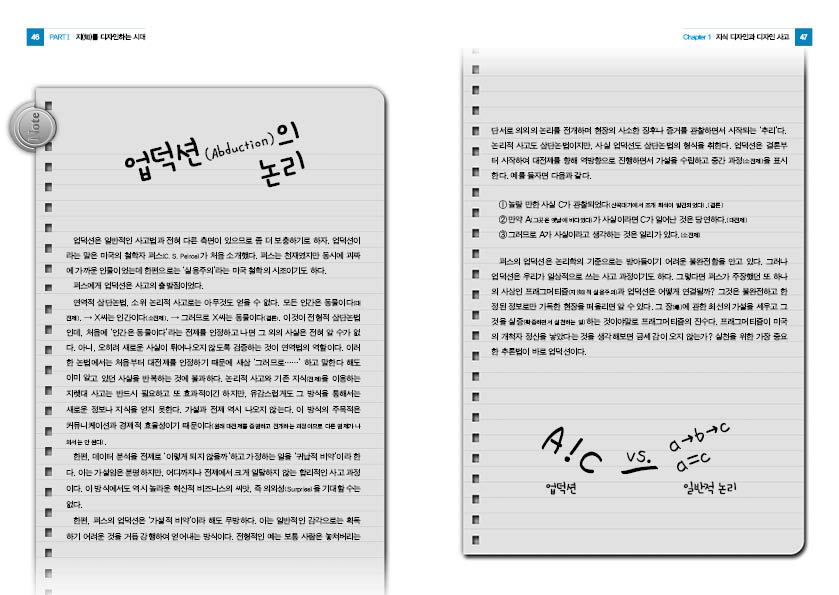 46 PART I 지(知)를 디자인하는 시대
Note
업덕션(Abduction)의
논리
업덕션은 일반적인 사고법과 전혀 다른 측면이 있으므로 좀 더 보충하기로 하자. 업덕션이
라는 말은 미국의 철학자 퍼스(C. S. Peirce)가 처음 소개했다. 퍼스는 천재였지만 동시에 괴짜
에 가까운 인물이었는데 한편으로는 '실용주의'라는 미국 철학의 시조이기도 하다.
퍼스에게 업덕션은 사고의 출발점이었다.
연역적 삼단논법, 소위 논리적 사고로는 아무것도 얻을 수 없다. 모든 인간은 동물이다(대
전제). → X씨는 인간이다(소전제). → 그러므로 X씨는 동물이다(결론). 이것이 전형적 삼단논법
인데, 처음에 '인간은 동물이다'라는 전제를 인정하고 나면 그 외의 사실은 전혀 알 수가 없
다. 아니, 오히려 새로운 사실이 튀어나오지 않도록 검증하는 것이 연역법의 역할이다. 이러
한 논법에서는 처음부터 대전제를 인정하기 때문에 새삼 '그러므로……' 하고 말한다 해도
이미 알고 있던 사실을 반복하는 것에 불과하다. 논리적 사고와 기존 지식(전제)을 이용하는
지렛대 사고는 반드시 필요하고 또 효과적이긴 하지만, 유감스럽게도 그 방식을 통해서는
새로운 정보나 지식을 얻지 못한다. 가설과 전제 역시 나오지 않는다. 이 방식의 주목적은
커뮤니케이션과 경제적 효율성이기 때문이다(원래 대전제를 증명하고 전개하는 과정이므로 다른 문제가 나
와서는 안 된다).
한편, 데이터 분석을 전제로 '이렇게 되지 않을까'하고 가정하는 일을 '귀납적 비약'이라 한
다. 이는 가설임은 분명하지만, 어디까지나 전제에서 크게 일탈하지 않는 합리적인 사고 과정
이다. 이 방식에서도 역시 놀라운 혁신적 비즈니스의 씨앗, 즉 의외성(Surprise)을 기대할 수는
없다.
한편, 퍼스의 업덕션은 '가설적 비약'이라 해도 무방하다. 이는 일반적인 감각으로는 획득
하기 어려운 것을 거듭 강행하여 얻어내는 방식이다. 전형적인 예는 보통 사람은 놓쳐버리는
Chapter 1 지식 디자인과 디자인 사고 47
단서로 의외의 논리를 전개하며 현장의 사소한 징후나 증거를 관찰하면서 시작되는 '추리'다.
논리적 사고도 삼단논법이지만, 사실 업덕션도 삼단논법의 형식을 취한다. 업덕션은 결론부
터 시작하여 대전제를 향해 역방향으로 진행하면서 가설을 수립하고 중간 과정(소전제)을 표시
한다. 예를 들자면 다음과 같다.
① 놀랄 만한 사실 C가 관찰되었다(산꼭대기에서 조개 화석이 발견되었다). (결론)
② 만약 A(그곳은 옛날에 바다였다)가 사실이라면 C가 일어난 것은 당연하다. (대전제)
③ 그러므로 A가 사실이라고 생각하는 것은 일리가 있다. (소전제)
퍼스의 업덕션은 논리학의 기준으로는 받아들이기 어려운 불완전함을 안고 있다. 그러나
업덕션은 우리가 일상적으로 쓰는 사고 과정이기도 하다. 그렇다면 퍼스가 주장했던 또 하나
의 사상인 프래그머티즘(미국의 실용주의)과 업덕션은 어떻게 연결될까? 그것은 불완전하고 한
정된 정보로만 가득한 현장을 떠올리면 알 수 있다. 그 장(場)에 관한 최선의 가설을 세우고 그
것을 실증(확증하면서 실천하는 일)하는 것이야말로 프래그머티즘의 진수다. 프래그머티즘이 미국
의 개척자 정신을 낳았다는 것을 생각해보면 금세 감이 오지 않는가? 실천을 위한 가장 중요
한 추론법이 바로 업덕션이다.
A!C vs. a→b→c
a=c
업덕션 일반적 논리